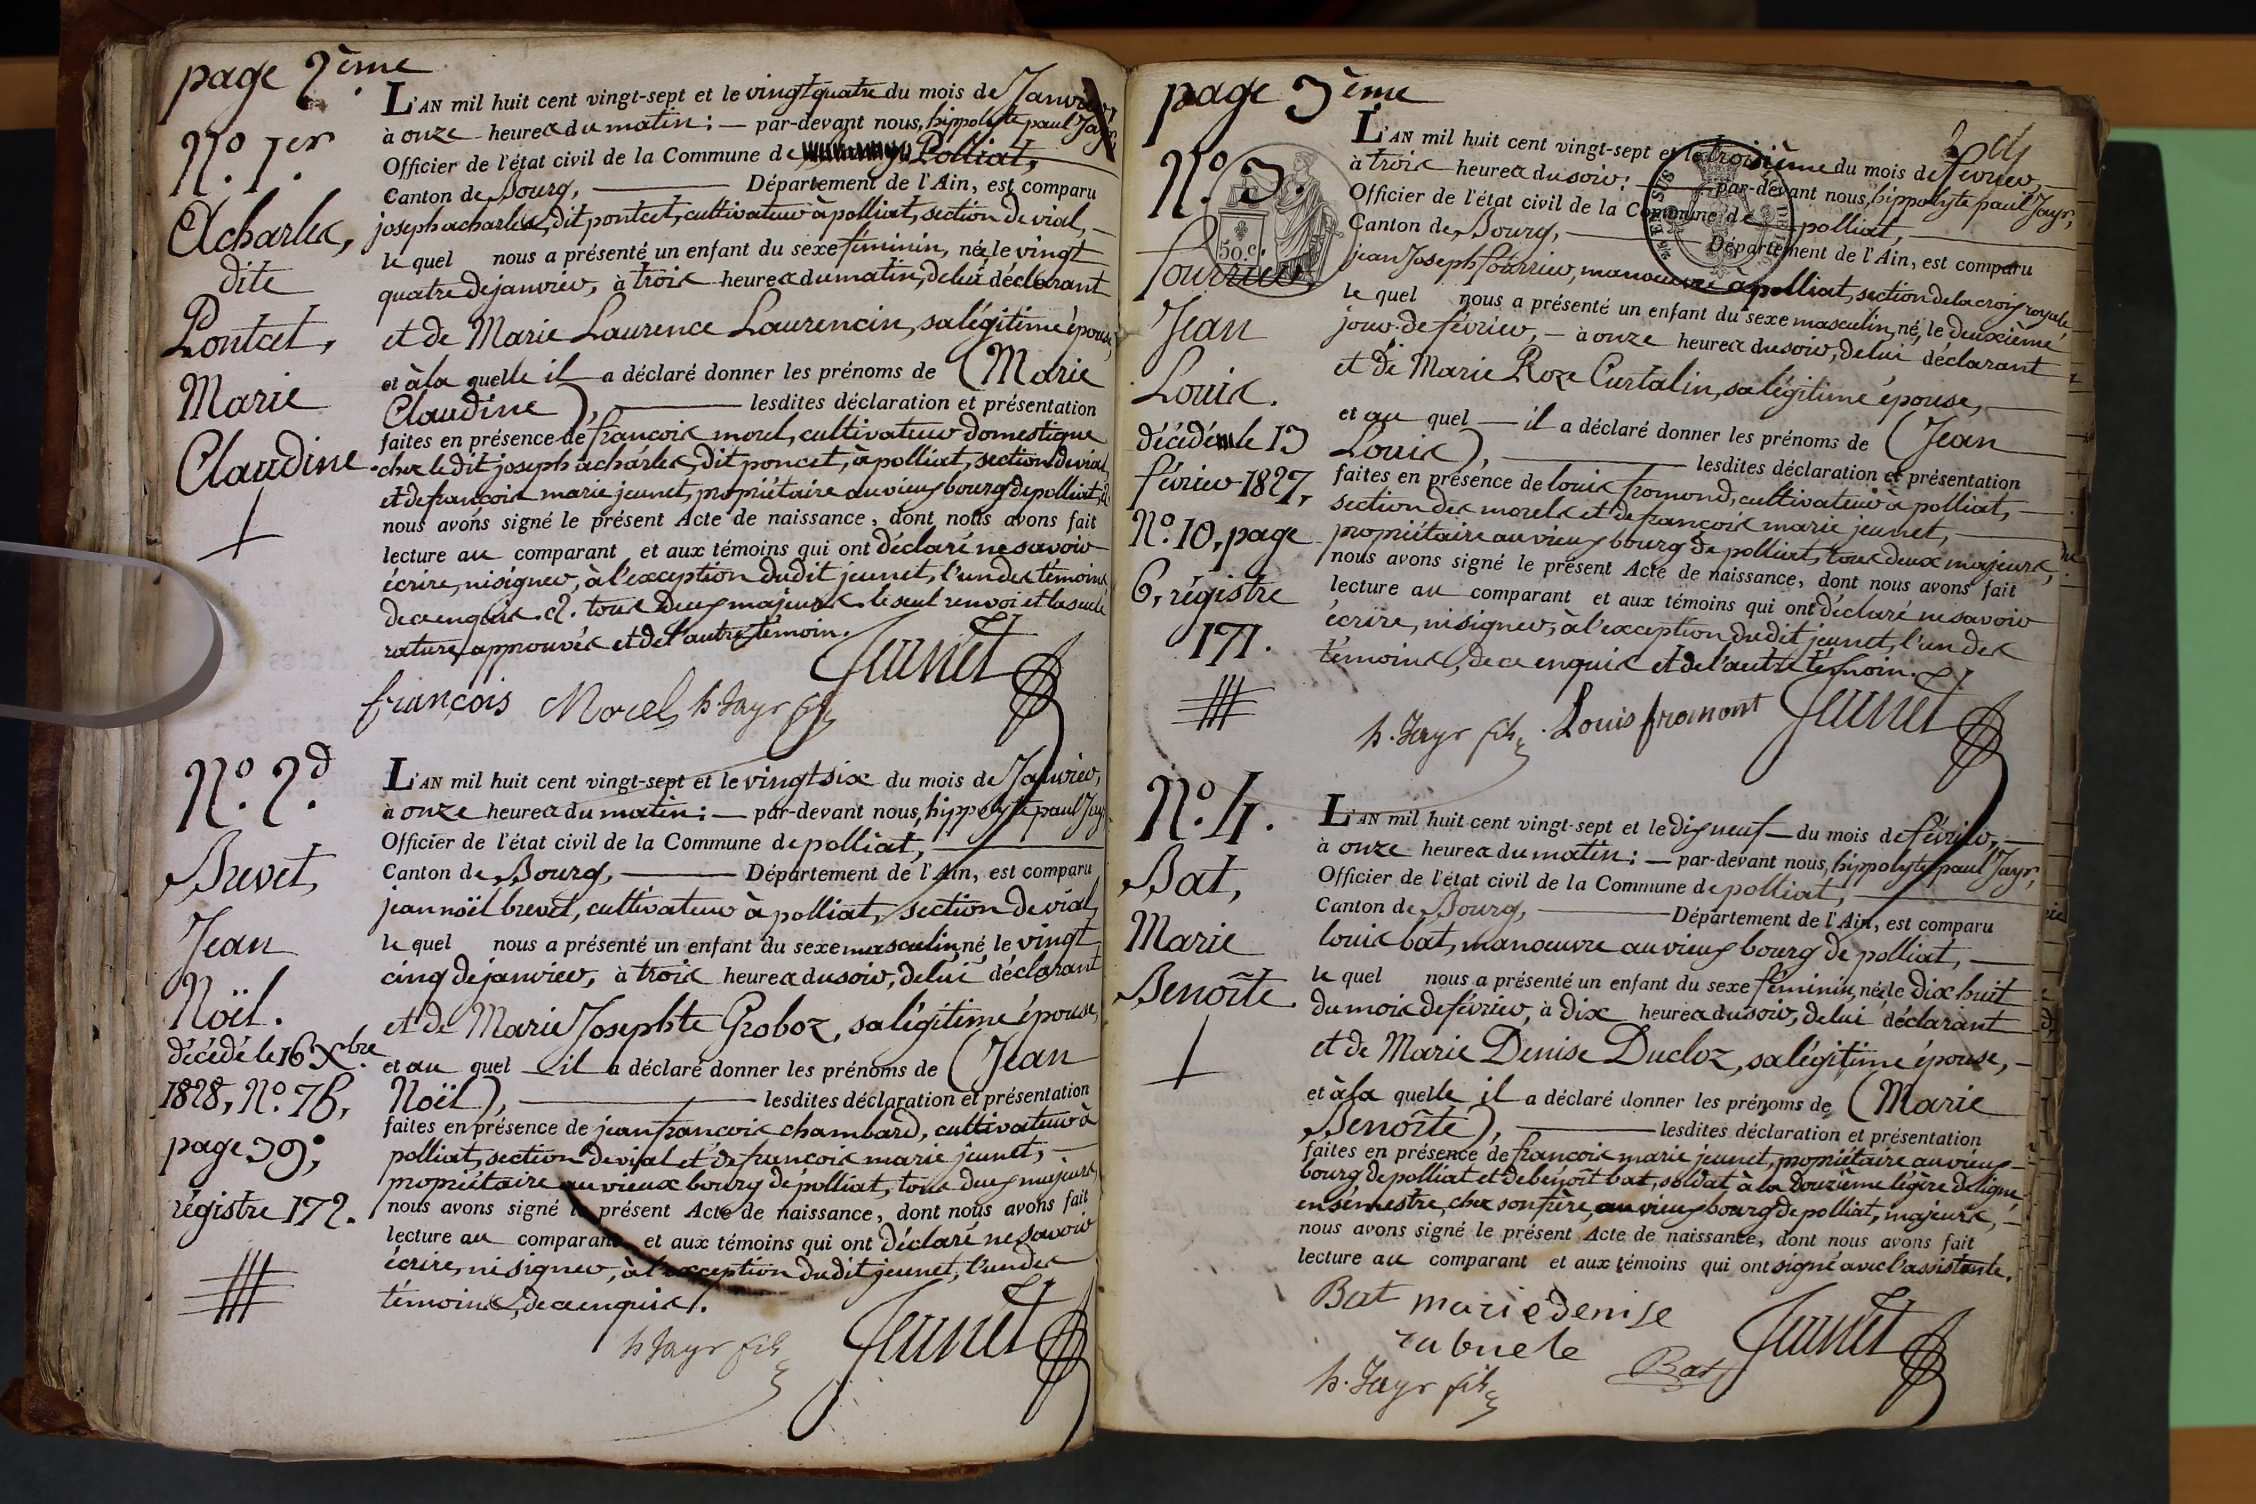 page 2ème
N.o 1.er
Acharles,
dite
Pontcet,
Marie
Claudine
L'AN mil huit cent vingt-sept et le vingt quatre du mois de Janvier,
à onze heures du matin; — par-devant nous, hippolyte paul Jayr,
Officier de l'état civil de la Commune de Polliat,
Canton de Bourg, — Département de l'Ain, est comparu
joseph acharles, dit pontcet, cultivateur à polliat, section de vial,
le quel nous a présenté un enfant du sexe féminin, née, le vingt
quatre de janvier, à trois heures du matin, de lui déclarant
et de Marie Laurence Laurencin, sa légitime épouse,
et à la quelle il a déclaré donner les prénoms de (Marie
Claudine), — lesdites déclaration et présentation
faites en présence de françois morel, cultivateur domestique
chez le dit joseph acharles, dit poncet, à polliat, section de vial,
et de françois marie jeunet, propriétaire au vieux bourg de polliat,
nous avons signé le présent Acte de naissance, dont nous avons fait
lecture au comparant et aux témoins qui ont déclaré ne savoir
écrire, ni signer, à l'exception du dit jeunet, l'un des témoins
de ce enquis. tous deux majeurs. le seul renvoi et la seule
rature approuvés et de l'autre témoin.
Jeunet
françois Morel h. Jayr fils
N.o 2.d
Brevet,
Jean
Noël.
décédé le 16 Xbre
1828, N.o 76,
page 39;
régistre 172.
L'AN mil huit cent vingt-sept et le vingt six du mois de Janvier,
à onze heures du matin; — par-devant nous, hippolyte paul Jayr
Officier de l'état civil de la Commune de polliat,
Canton de Bourg, — Département de l'Ain, est comparu
jean noël brevet, cultivateur à polliat, section de vial,
le quel nous a présenté un enfant du sexe masculin, né, le vingt
cinq de janvier, à trois heures du soir, de lui déclarant
et de Marie Josephte Groboz, sa légitime épouse,
et au quel — il a déclaré donner les prénoms de (Jean
Noël), — lesdites déclaration et présentation
faites en présence de jean françois chambard, cultivateur à
polliat, section de vial et de françois marie jeunet,
propriétaire au vieux bourg de polliat, tous deux majeurs,
nous avons signé le présent Acte de naissance, dont nous avons fait
lecture au comparant et aux témoins qui ont déclaré ne savoir
écrire, ni signer, à l'exception du dit jeunet, l'un des
témoins, de ce enquis.
h Jayr fils Jeunet
page 3ème
N.o 3.
50 c.
fourrier,
Jean
Louis.
décédé le 13
février 1827,
N.o 10, page
6, régistre
171.
L'AN mil huit cent vingt-sept et le troisième du mois de février,
à trois heures du soir; — par-devant nous, hippolyte paul Jayr,
Officier de l'état civil de la Commune de polliat,
Canton de Bourg, — Département de l'Ain, est comparu
jean Joseph fourrier, manoeuvre à polliat, section de la croix royale,
le quel nous a présenté un enfant du sexe masculin, né, le deuxième
jour de février, — à onze heures du soir, de lui déclarant
et de Marie Roze Curtalin, sa légitime épouse,
et au quel — il a déclaré donner les prénoms de (Jean
Louis), — lesdites déclaration et présentation
faites en présence de louis fromond, cultivateur à polliat,
section des morels et de françois marie jeunet,
propriétaire au vieux bourg de polliat, tous deux majeurs,
nous avons signé le présent Acte de naissance, dont nous avons fait
lecture au comparant et aux témoins qui ont déclaré ne savoir
écrire, ni signer, à l'exception du dit jeunet, l'un des
témoins, de ce enquis et de l'autre témoin.
h. Jayr fils. Louis fromont Jeunet
N.o 4.
Bat,
Marie
Benoîte
L'AN mil huit cent vingt-sept et le dix neuf — du mois de février,
à onze heures du matin; — par-devant nous, hippolyte paul Jayr,
Officier de l'état civil de la Commune de polliat,
Canton de Bourg, — Département de l'Ain, est comparu
louis bat, manoeuvre au vieux bourg de polliat,
le quel nous a présenté un enfant du sexe féminin, née, le dix huit
du mois de février, à dix heures du soir, de lui déclarant
et de Marie Denise Ducloz, sa légitime épouse,
et à la quelle il a déclaré donner les prénoms de (Marie
Benoîte), — lesdites déclaration et présentation
faites en présence de françois marie jeunet, propriétaire au vieux
bourg de polliat et de benoît bat, soldat à la douzième légère de ligne
en sémestre, chez son frère, au vieux bourg de polliat, majeurs,
nous avons signé le présent Acte de naissance, dont nous avons fait
lecture au comparant et aux témoins qui ont signé avec l'assistante.
Bat marie denise
Jeunet
h. Jayr fils Bat